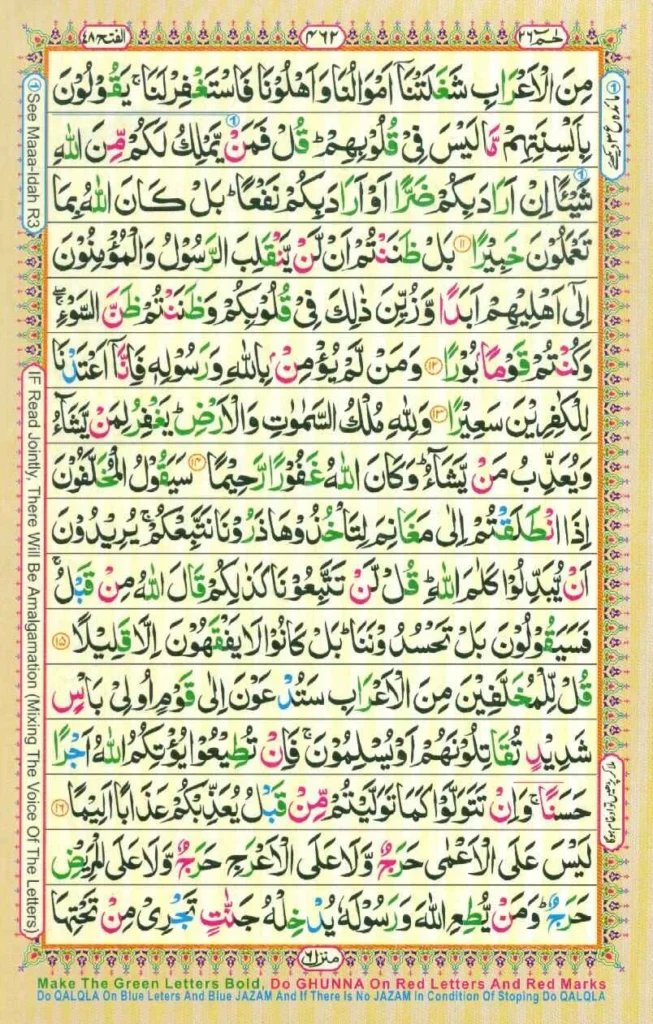 الفتح ٤٨
٤٦٢
حٰمٓ ٢٦
مِنَ الْاَعْرَابِ شَغَلَتْنَاۤ اَمْوَالُنَا وَاَهْلُوْنَا فَاسْتَغْفِرْ لَنَا ۚ يَقُوْلُوْنَ
بِاَلْسِنَتِهِمْ مَّا لَيْسَ فِيْ قُلُوْبِهِمْ ؕ قُلْ فَمَنْ يَّمْلِكُ لَكُمْ مِّنَ اللّٰهِ
شَيْـًٔا اِنْ اَرَادَ بِكُمْ ضَرًّا اَوْ اَرَادَ بِكُمْ نَفْعًا ؕ بَلْ كَانَ اللّٰهُ بِمَا
تَعْمَلُوْنَ خَبِيْرًا ۝۱۱ بَلْ ظَنَنْتُمْ اَنْ لَّنْ يَّنْقَلِبَ الرَّسُوْلُ وَالْمُؤْمِنُوْنَ
اِلٰۤى اَهْلِيْهِمْ اَبَدًا وَّزُيِّنَ ذٰلِكَ فِيْ قُلُوْبِكُمْ وَظَنَنْتُمْ ظَنَّ السَّوْءِ ۖۚ
وَكُنْتُمْ قَوْمًۢا بُوْرًا ۝۱۲ وَمَنْ لَّمْ يُؤْمِنْۢ بِاللّٰهِ وَرَسُوْلِهٖ فَاِنَّاۤ اَعْتَدْنَا
لِلْكٰفِرِيْنَ سَعِيْرًا ۝۱۳ وَلِلّٰهِ مُلْكُ السَّمٰوٰتِ وَالْاَرْضِ ؕ يَغْفِرُ لِمَنْ يَّشَآءُ
وَيُعَذِّبُ مَنْ يَّشَآءُ ؕ وَكَانَ اللّٰهُ غَفُوْرًا رَّحِيْمًا ۝۱۴ سَيَقُوْلُ الْمُخَلَّفُوْنَ
اِذَا انْطَلَقْتُمْ اِلٰى مَغَانِمَ لِتَاْخُذُوْهَا ذَرُوْنَا نَتَّبِعْكُمْ ۚ يُرِيْدُوْنَ
اَنْ يُّبَدِّلُوْا كَلٰمَ اللّٰهِ ؕ قُلْ لَّنْ تَتَّبِعُوْنَا كَذٰلِكُمْ قَالَ اللّٰهُ مِنْ قَبْلُ ۚ
فَسَيَقُوْلُوْنَ بَلْ تَحْسُدُوْنَنَا ؕ بَلْ كَانُوْا لَا يَفْقَهُوْنَ اِلَّا قَلِيْلًا ۝۱۵
قُلْ لِّلْمُخَلَّفِيْنَ مِنَ الْاَعْرَابِ سَتُدْعَوْنَ اِلٰى قَوْمٍ اُولِيْ بَاْسٍ
شَدِيْدٍ تُقَاتِلُوْنَهُمْ اَوْ يُسْلِمُوْنَ ۚ فَاِنْ تُطِيْعُوْا يُؤْتِكُمُ اللّٰهُ اَجْرًا
حَسَنًا ۚ وَاِنْ تَتَوَلَّوْا كَمَا تَوَلَّيْتُمْ مِّنْ قَبْلُ يُعَذِّبْكُمْ عَذَابًا اَلِيْمًا ۝۱۶
لَيْسَ عَلَى الْاَعْمٰى حَرَجٌ وَّلَا عَلَى الْاَعْرَجِ حَرَجٌ وَّلَا عَلَى الْمَرِيْضِ
حَرَجٌ ؕ وَمَنْ يُّطِعِ اللّٰهَ وَرَسُوْلَهٗ يُدْخِلْهُ جَنّٰتٍ تَجْرِيْ مِنْ تَحْتِهَا
منزل ٦
① See Maaa-Idah R3
IF Read Jointly, There Will Be Amalgamation (Mixing The Voice Of The Letters)
Make The Green Letters Bold, Do GHUNNA On Red Letters And Red Marks
Do QALQLA On Blue Leters And Blue JAZAM And If There Is No JAZAM In Condition Of Stoping Do QALQLA